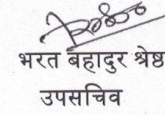 भरत बहादुर श्रेष्ठ
उपसचिव